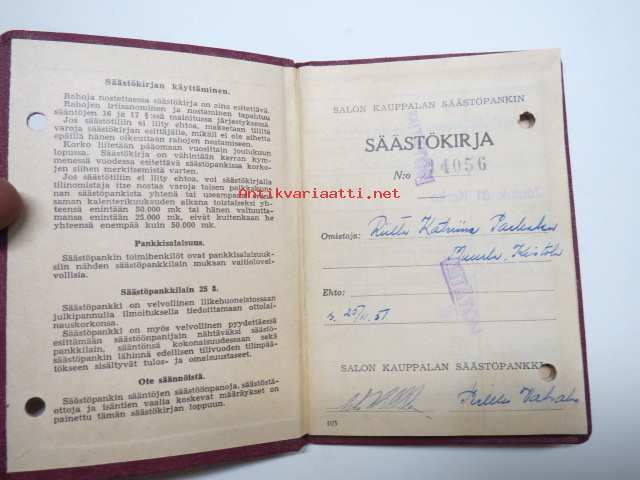 Säästökirjan käyttäminen.
Rahoja nostettaessa säästökirja on aina esitettävä.
Rahojen irtisanominen ja nostaminen tapahtuu
sääntöjen 16 ja 17 §:ssä mainitussa järjestyksessä.
Jos säästötiliin ei liity ehtoa, maksetaan tililtä
varoja säästökirjan esittäjälle, mikäli ei ole aihetta
epäillä hänen oikeuttaan rahojen nostamiseen.
Korko liitetään pääomaan vuosittain joulukuun
lopussa. Säästökirja on vähintään kerran kym-
menessä vuodessa esitettävä säästöpankissa korko-
jen siihen merkitsemistä varten.
Jos säästötiliin ei liity ehtoa, voi säästökirjalla
tilinomistaja itse nostaa varoja toisen paikkakun-
nan säästöpankista yhtenä tai useampana eränä
saman kalenterikuukauden aikana toistaiseksi yh-
teensä enintään 50.000 mk tai hänen valtuutta-
mansa enintään 25.000 mk, eivät kuitenkaan he
yhteensä enempää kuin 50.000 mk.
Pankkisalaisuus.
Säästöpankin toimihenkilöt ovat pankkisalaisuuk-
siin nähden säästöpankkilain mukaan vaitiolovel-
vollisia.
Säästöpankkilain 25 §.
Säästöpankki on velvollinen liikehuoneistossaan
julkipannulla ilmoituksella tiedoittamaan ottolai-
nauskorkonsa.
Säästöpankki on myös velvollinen pyydettäessä
esittämään säästöönpanijain nähtäväksi säästö-
pankkilain, sääntönsä kokonaisuudessaan sekä
säästöpankin lähinnä edellisen tilivuoden tilinpää-
tökseen sisältyvät tulos- ja omaisuustaset.
Ote säännöistä.
Säästöpankin sääntöjen säästöönpanoja, säästöstä-
ottoja ja isäntien vaalia koskevat määräykset on
painettu tämän säästökirjan loppuun.
SALON KAUPPALAN SÄÄSTÖPANKIN
SÄÄSTÖKIRJA
N:o 4056
antikvariaatti.net
Omistaja: Riitta Katriina
Muurla, Kistola
Ehto:
s. 25/11.51
SALON KAUPPALAN SÄÄSTÖPANKKI
103